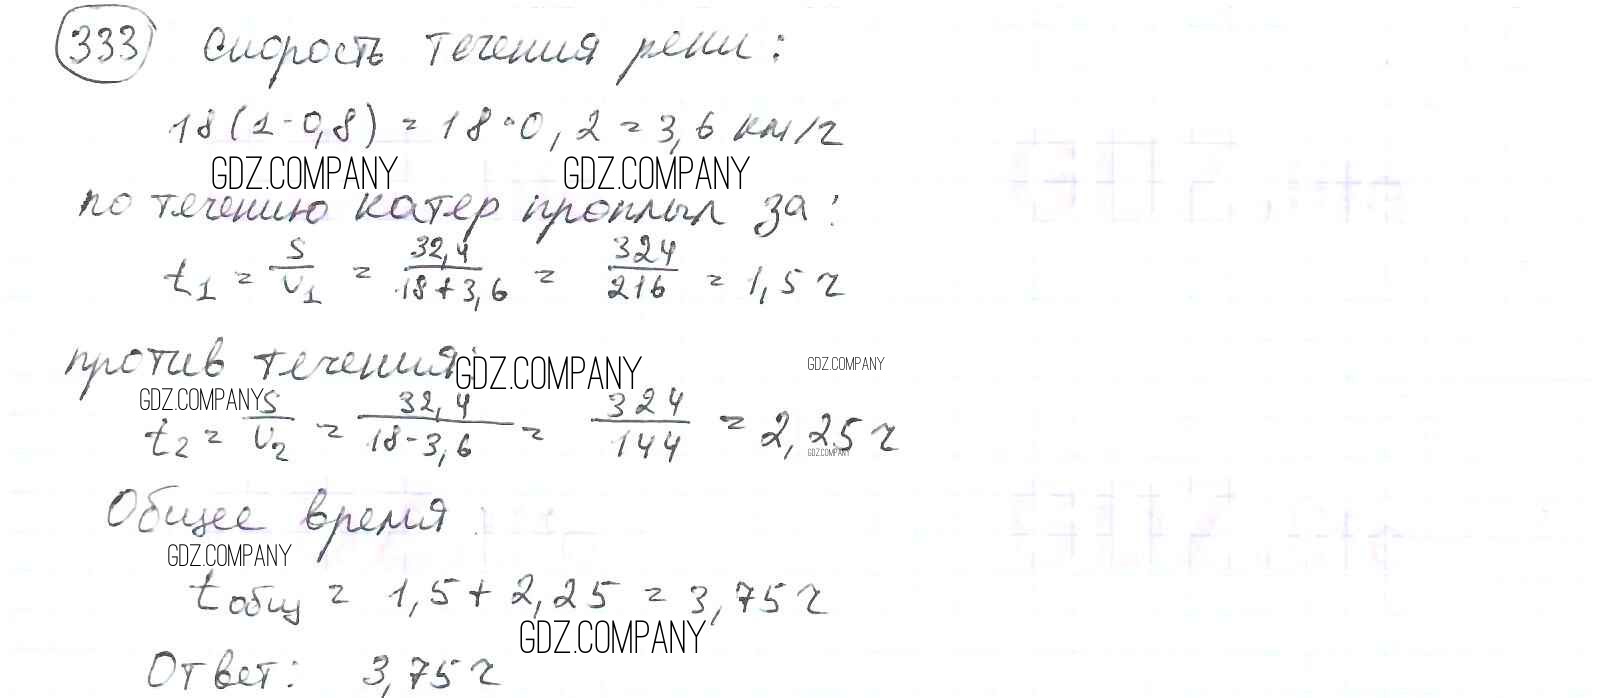 333 Скорость течения реки:
18(1-0,8) = 18·0,2 = 3,6 км/ч
GDZ.COMPANY GDZ.COMPANY
по течению катер проплыл за:
t1 = S/v1 = 32,4/18+3,6 = 324/216 = 1,5 ч
против течения:
GDZ.COMPANY GDZ.COMPANY
GDZ.COMPANY
t2 = S/v2 = 32,4/18-3,6 = 324/144 = 2,25 ч
GDZ.COMPANY
Общее время:
GDZ.COMPANY
tобщ = 1,5 + 2,25 = 3,75 ч
GDZ.COMPANY
Ответ: 3,75 ч